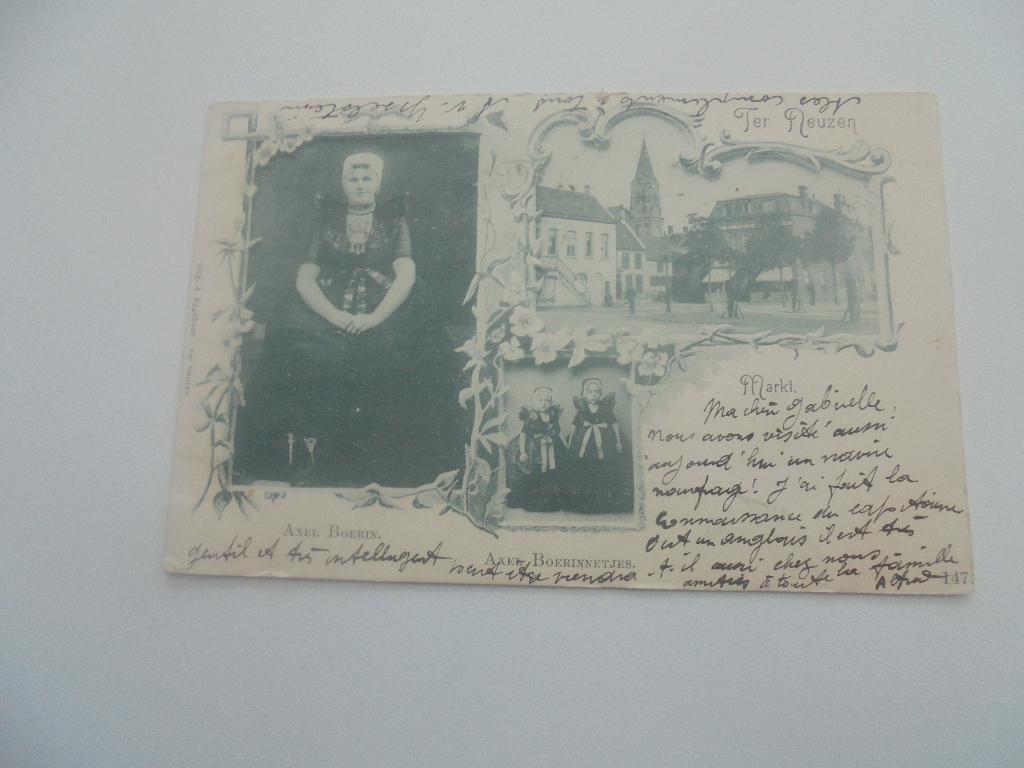 Ter Neuzen
Markt.
Ma chère Gabrielle,
Nous avons visité aussi
aujourd'hui un navire
naufragé! J'ai fait la
connaissance du capitaine
C'est un anglais il est très
gentil et très intelligent
peut être viendra
t. il aussi chez nous
amitiés à toute la famille
Alfred
Mes compliments à tous
v. Ysselstein
AXEL BOERIN.
AXEL BOERINNETJES.
147